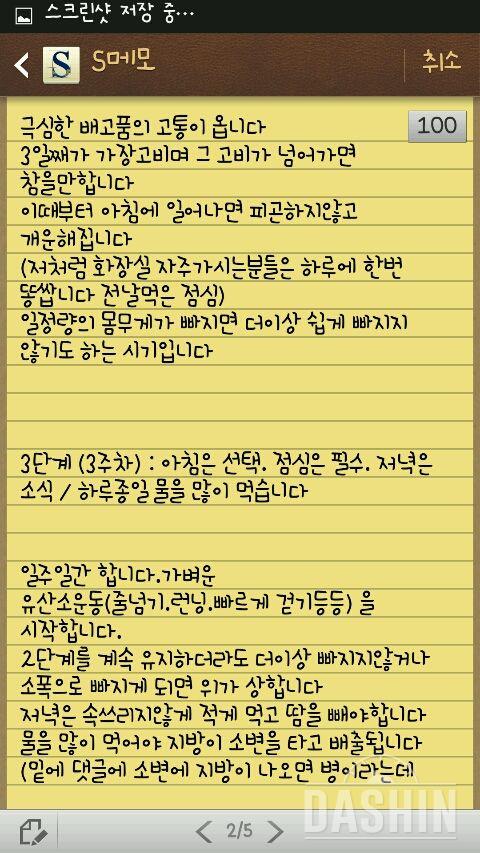 스크린샷 저장 중...
S메모
취소
100
극심한 배고품의 고통이 옵니다
3일째가 가장고비며 그 고비가 넘어가면
참을만합니다
이때부터 아침에 일어나면 피곤하지않고
개운해집니다
(저처럼 화장실 자주가시는분들은 하루에 한번
똥쌉니다 전날먹은 점심)
일정량의 몸무게가 빠지면 더이상 쉽게 빠지지
않기도 하는 시기입니다
3단계 (3주차) : 아침은 선택. 점심은 필수. 저녁은
소식 / 하루종일 물을 많이 먹습니다
일주일간 합니다.가벼운
유산소운동(줄넘기.런닝.빠르게 걷기등등) 을
시작합니다.
2단계를 계속 유지하더라도 더이상 빠지지않거나
소폭으로 빠지게 되면 위가 상합니다
저녁은 속쓰리지않게 적게 먹고 땀을 빼야합니다
물을 많이 먹어야 지방이 소변을 타고 배출됩니다
(밑에 댓글에 소변에 지방이 나오면 병이라는데
DASHIN
2/5